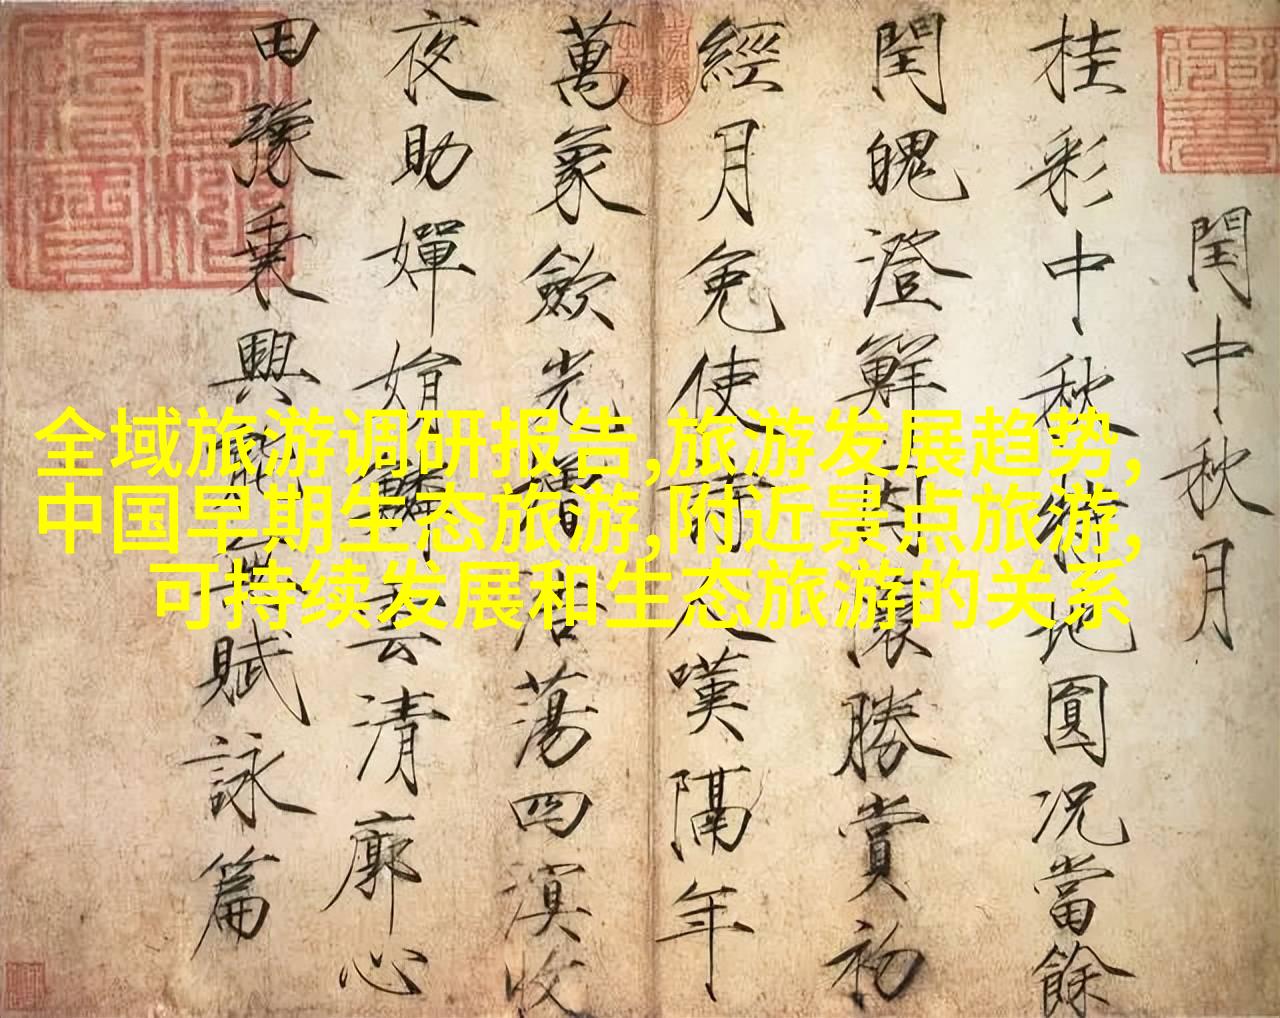 閏中秋月
桂彩中秋特地圓況當餘
閏魄澄鮮因懷勝賞初
經月免使詩人嘆隔年
萬象斂光增浩蕩四溟收
夜助嬋娟鱗云清廓心
田豫乘興能無賦詠篇
全域旅游调研报告,旅游发展趋势,
中国早期生态旅游,附近景点旅游,
可持续发展和生态旅游的关系